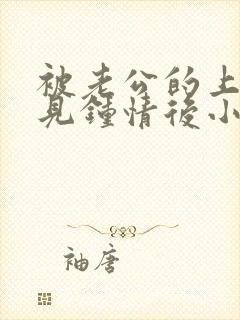 被老公的上
見鍾情後小
袖唐